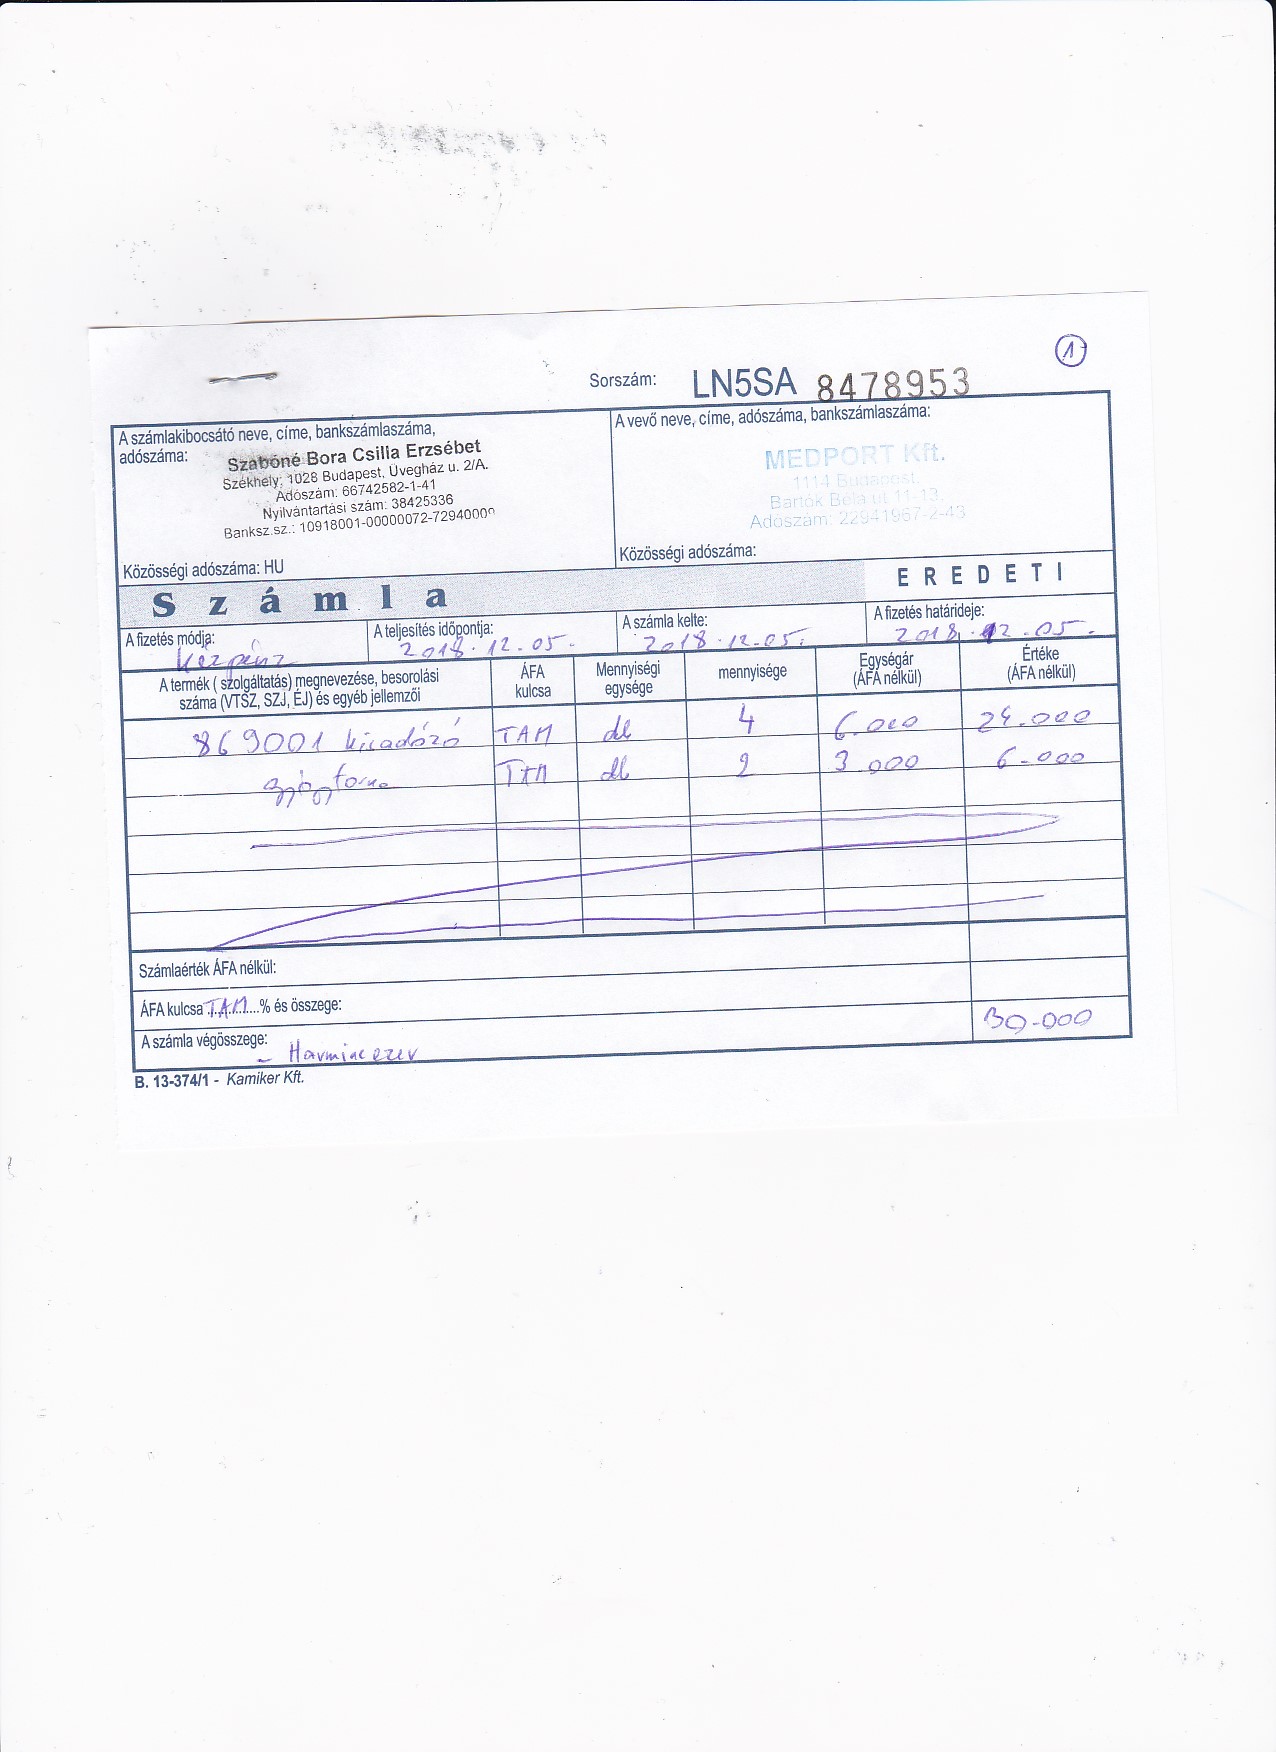 1
Sorszám: LN5SA 8478953
A számlakibocsátó neve, címe, bankszámlaszáma,
adószáma:
Szabóné Bora Csilla Erzsébet
Székhely: 1028 Budapest, Üvegház u. 2/A.
Adószám: 66742582-1-41
Nyilvántartási szám: 38425336
Banksz.sz.: 10918001-00000072-72940000
Közösségi adószáma: HU
A vevő neve, címe, adószáma, bankszámlaszáma:
MEDPORT Kft.
1114 Budapest,
Bartók Béla út 11-13.
Adószám: 22941967-2-43
Közösségi adószáma:
Számla
EREDETI
A fizetés módja:
Készpénz
A teljesítés időpontja:
2018.12.05.
A számla kelte:
2018.12.05.
A fizetés határideje:
2018.12.05.
A termék ( szolgáltatás) megnevezése, besorolási
száma (VTSZ, SZJ, ÉJ) és egyéb jellemzői
ÁFA
kulcsa
Mennyiségi
egysége
mennyisége
Egységár
(ÁFA nélkül)
Értéke
(ÁFA nélkül)
869001 TAM db 4 6.000 24.000
gyógytorna TAM db 2 3 000 6-000
Számlaérték ÁFA nélkül:
ÁFA kulcsa TAM % és összege:
A számla végösszege: - Harmincezer 30-000
B. 13-374/1 - Kamiker Kft.